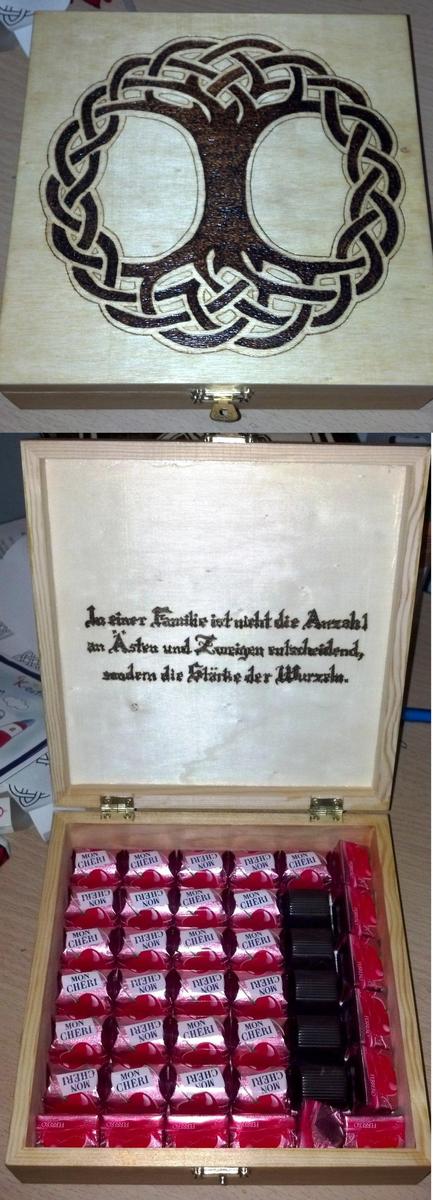 In einer Familie ist nicht die Anzahl
an Ästen und Zweigen entscheidend,
sondern die Stärke der Wurzeln.
MON CHERI MON CHERI MON CHERI MON CHERI MON CHERI
MON CHERI MON CHERI MON CHERI MON CHERI
MON CHERI MON CHERI MON CHERI MON CHERI
MON CHERI MON CHERI MON CHERI MON CHERI
MON CHERI MON CHERI MON CHERI MON CHERI
MON CHERI MON CHERI MON CHERI MON CHERI
FERRERO FERRERO FERRERO FERRERO FERRERO